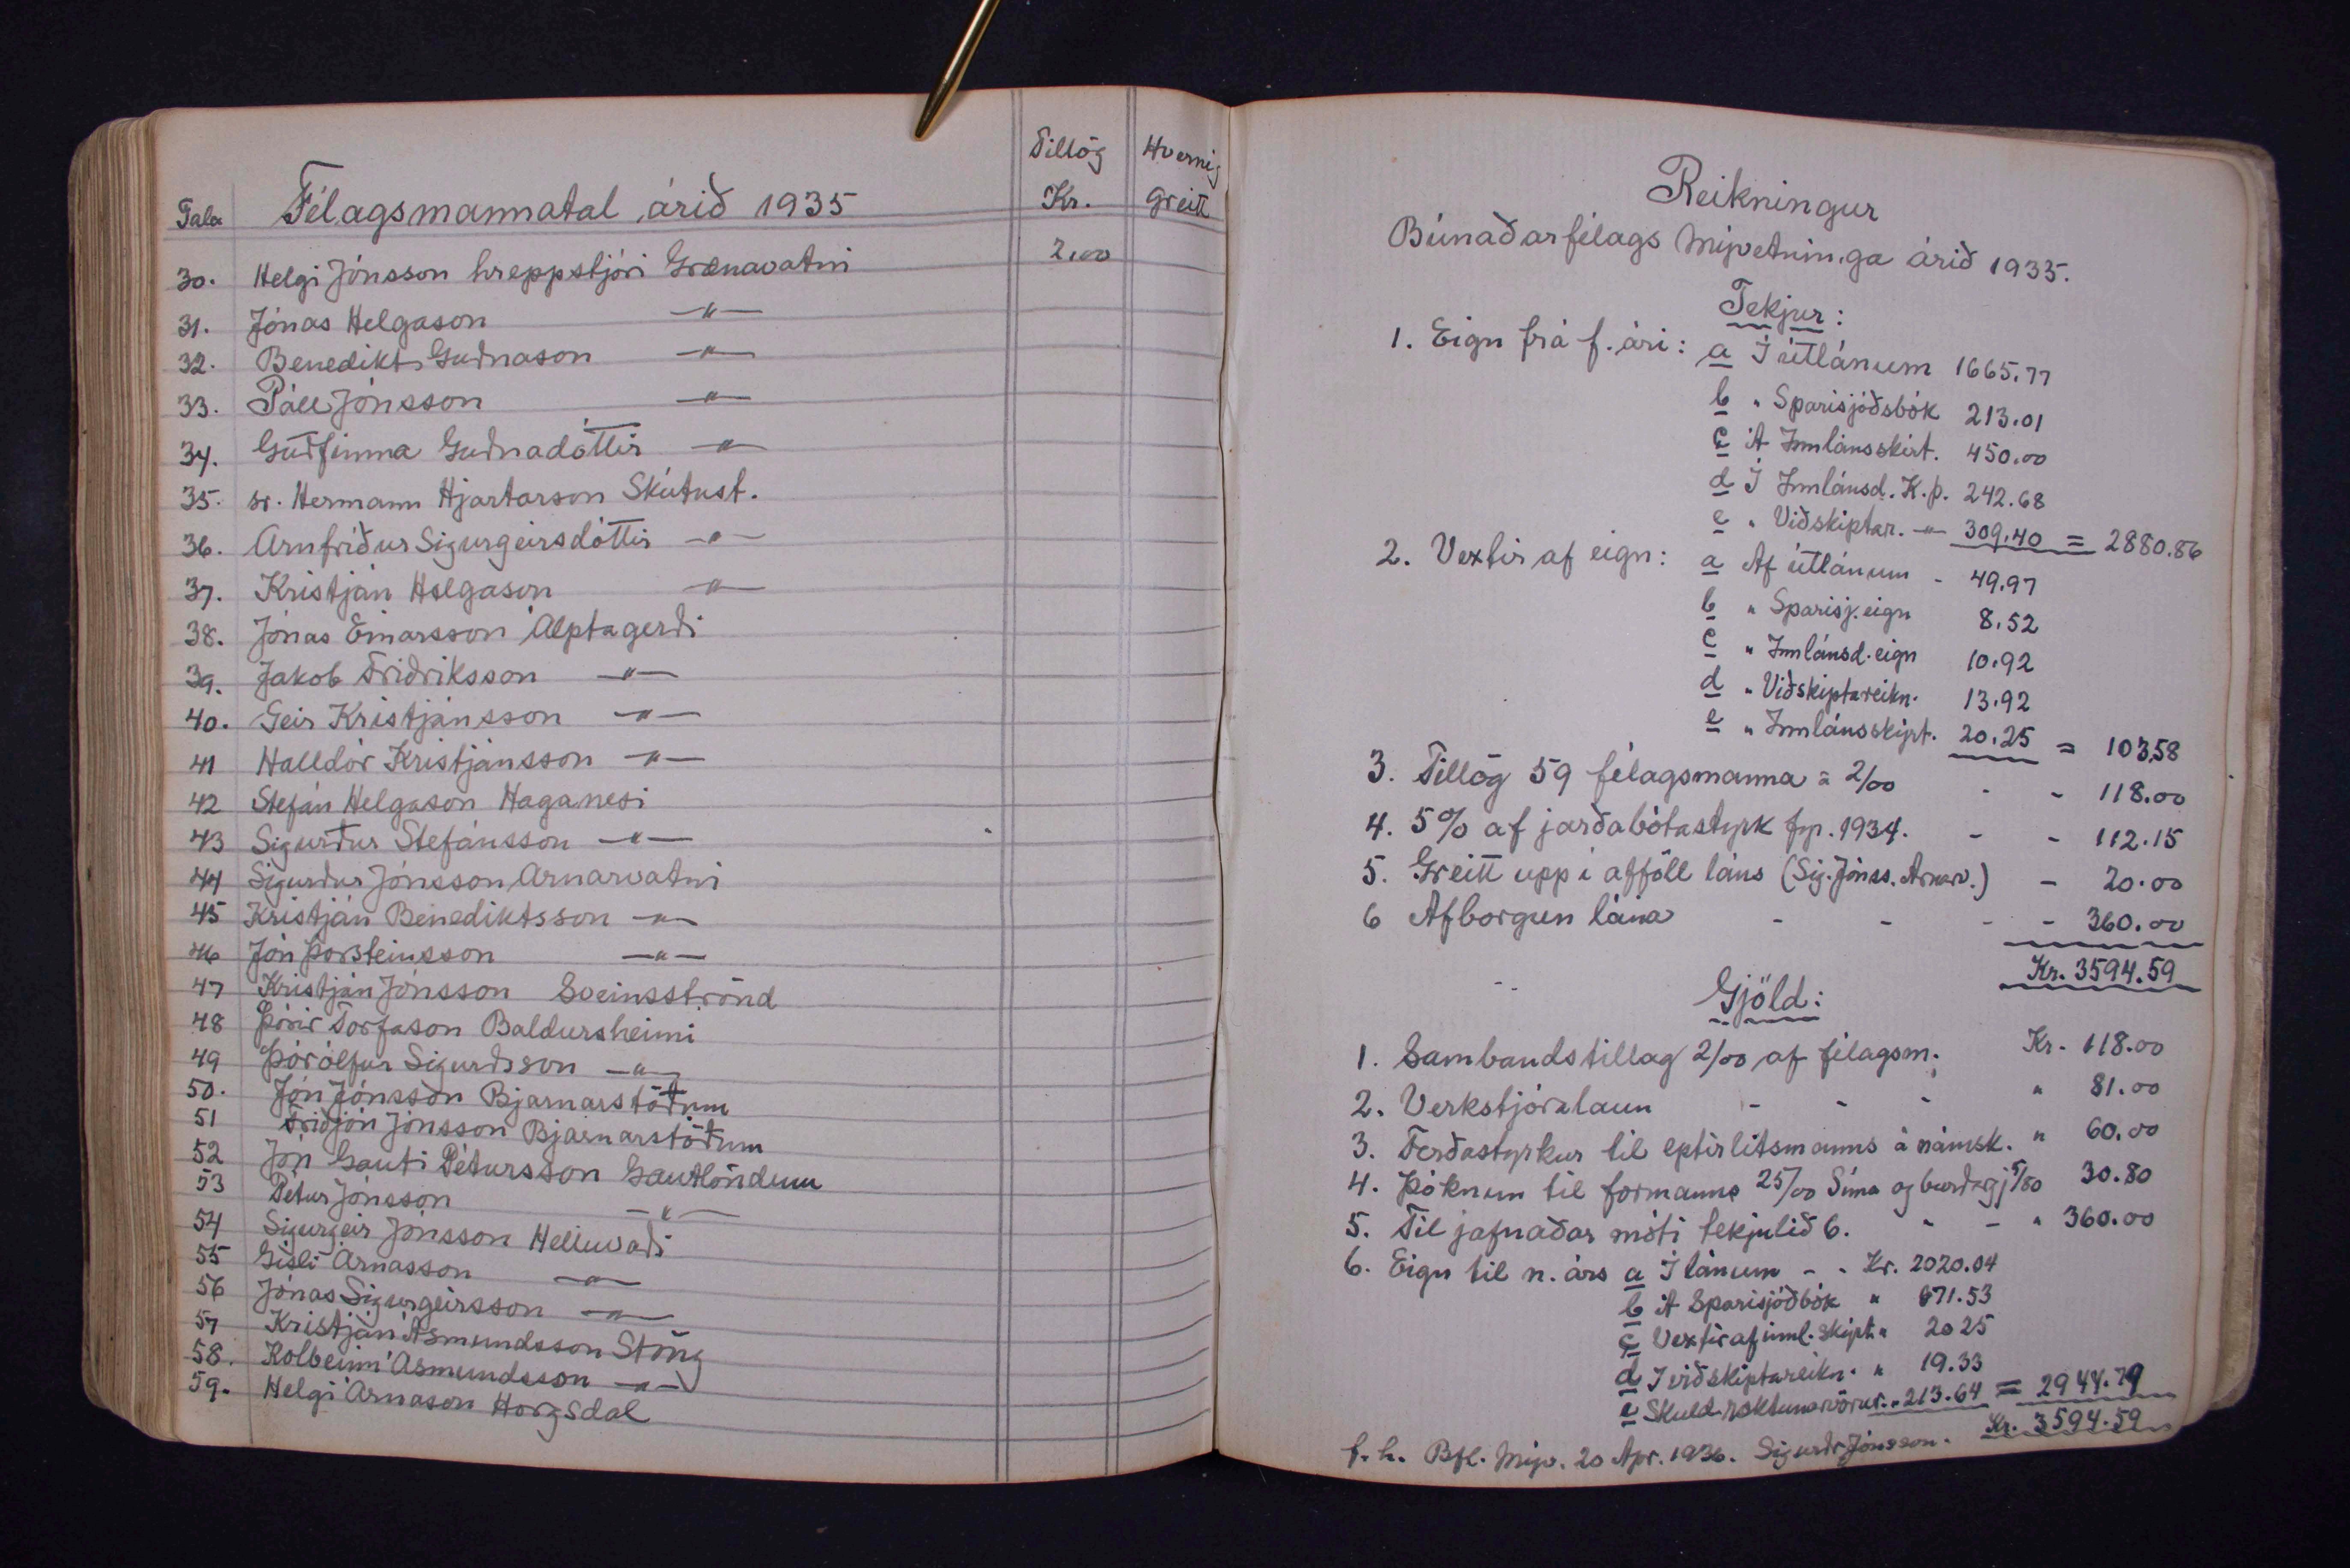 Tala Félagsmannatal árið 1935 Tillög Kr. Hvernig greitt
30. Helgi Jónsson hreppstjóri Grænavatni 2,00
31. Jónas Helgason —"—
32. Benedikt Guðnason —"—
33. Páll Jónsson —"—
34. Guðfinna Guðnadóttir —"—
35. sr. Hermann Hjartarson Skútust.
36. Arnfríður Sigurgeirsdóttir —"—
37. Kristján Helgason —"—
38. Jónas Einarsson Álptagerði
39. Jakob Friðriksson —"—
40. Geir Kristjánsson —"—
41 Halldór Kristjánsson —"—
42 Stefán Helgason Haganesi
43 Sigurður Stefánsson —"—
44 Sigurður Jónsson Arnarvatni
45 Kristján Benediktsson —"—
46 Jón Þorsteinsson —"—
47 Kristján Jónsson Sveinsströnd
48 Þórir Torfason Baldursheimi
49 Þórólfur Sigurðsson —"—
50. Jón Jónsson Bjarnarstöðum
51 Friðjón Jónsson Bjarnarstöðum
52 Jón Gauti Pétursson Gautlöndum
53 Pétur Jónsson —"—
54 Sigurgeir Jónsson Helluvaði
55 Gísli Árnasson —"—
56 Jónas Sigurgeirsson —"—
57 Kristján Ásmundsson Stöng
58. Kolbeinn Ásmundsson —"—
59. Helgi Árnason Horgsdal
Reikningur
Búnaðarfélags Mývetninga árið 1935.
Tekjur:
1. Eign frá f. ári: a Í útlánum 1665.77
b " Sparisjóðsbók 213.01
c Á Innlánsskírt. 450.00
d Í Innlánsd. K.Þ. 242.68
e " Viðskiptar. —"— 309.40 = 2880.86
2. Vextir af eign: a Af útlánum - 49.97
b " Sparisj. eign 8.52
c " Innlánsd. eign 10.92
d " Viðskiptareikn. 13.92
e " Innlánsskírt. 20.25 = 103,58
3. Tillög 59 félagsmanna á 2/00 - - 118.00
4. 5% af jarðabótastyrk fyr. 1934. - - 112.15
5. Greitt upp í afföll láns (Sig. Jónss. Arnarv.) - 20.00
6 Afborgun lána - - - - 360.00
Kr. 3594.59
Gjöld:
1. Sambandstillag 2/00 af félagsm. Kr. 118.00
2. Verkstjóralaun - - - " 81.00
3. Ferðastyrkur til eptirlitsmanns á námsk. " 60.00
4. Þóknun til formanns 25/00 Síma og burðargj 5/80 30.80
5. Til jafnaðar móti tekjulið 6. " - " 360.00
6. Eign til n. árs a Í lánum - - Kr. 2020.04
b Á Sparisjóðbók " 671.53
c Vextir af innl. skírt. " 20 25
d Í viðskiptareikn. " 19.33
e Skuld ræktunarvörur. " 213.64 = 2944.79
Kr. 3594.59
f. h. Bfl. Mýv. 20 Apr. 1936. Sigurðr Jónsson.